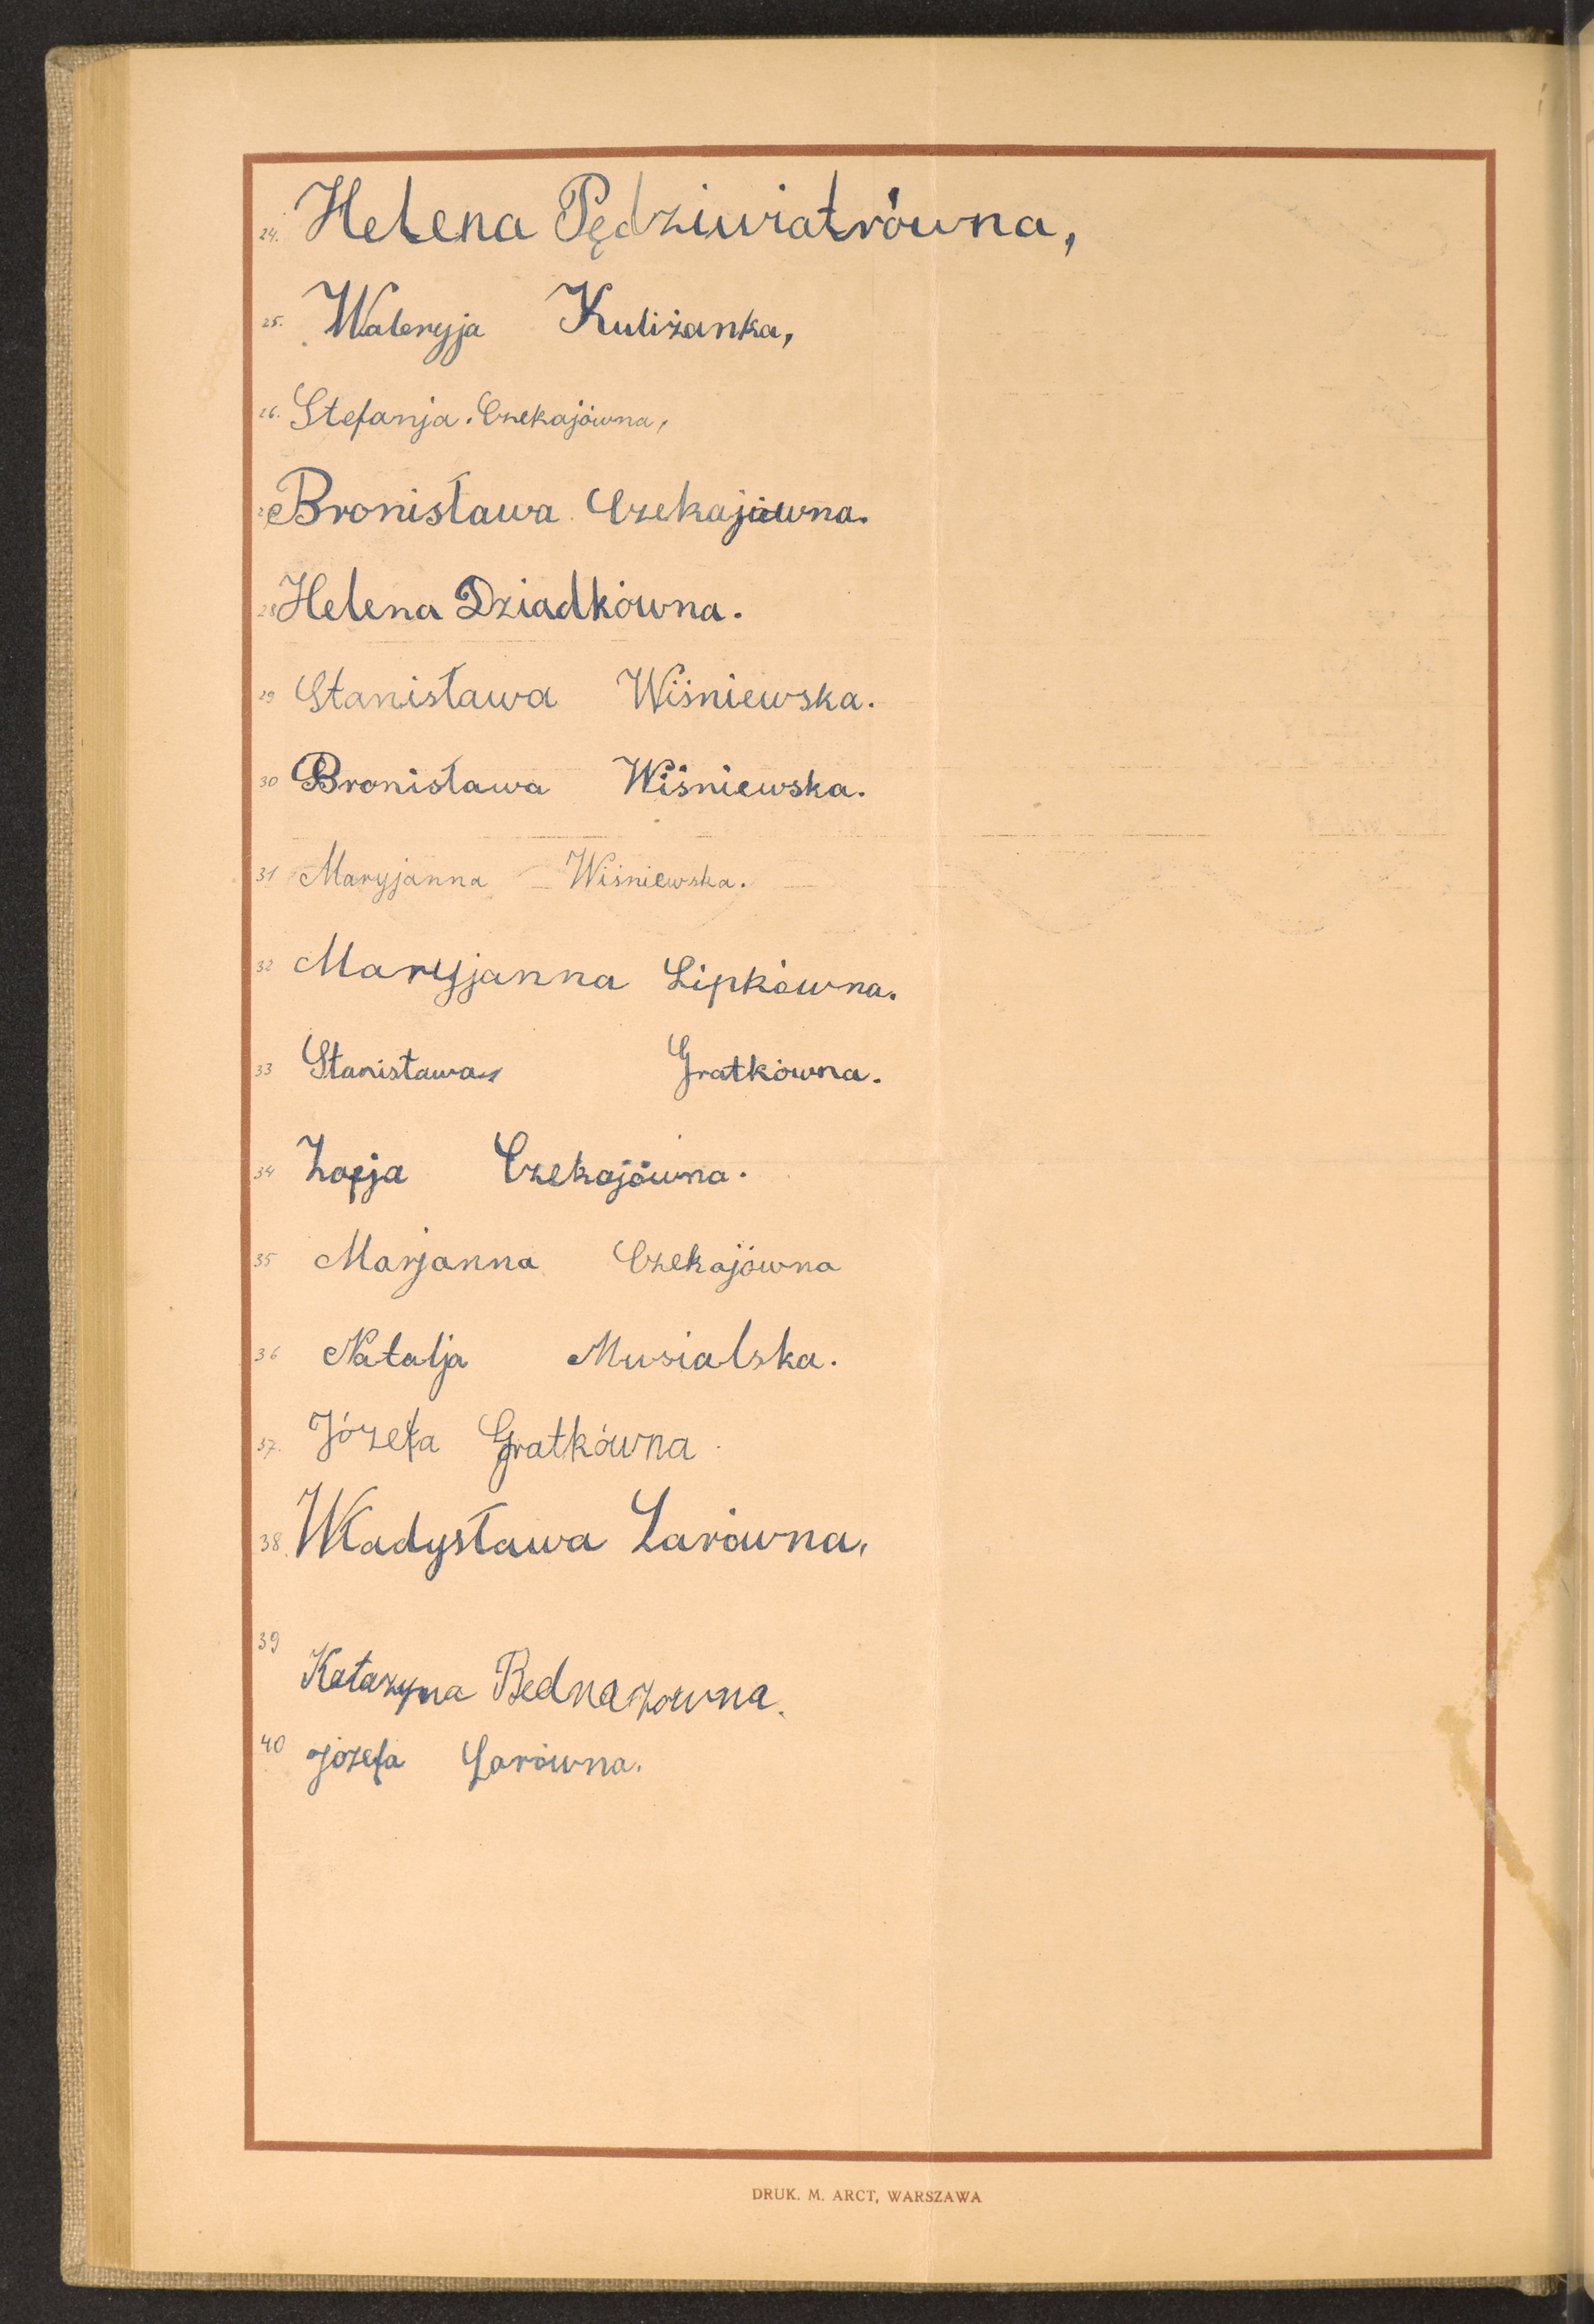 24. Helena Pędziwiatrówna,
25. Waleryja Kuliżanka,
26. Stefanja Czekajówna,
Bronisława Czekajówna.
28 Helena Dziadkówna.
29 Stanisława Wiśniewska.
30 Bronisława Wiśniewska.
31 Maryjanna Wiśniewska.
32 Maryjanna Lipkówna.
33 Stanisława Gratkówna.
34 Zofja Czekajówna.
35 Marjanna Czekajówna
36 Natalja Musialska.
37. Józefa Gratkówna
38. Władysława Larówna,
39
Katazyna Bednazowna.
40 Józefa Larówna.
DRUK. M. ARCT, WARSZAWA